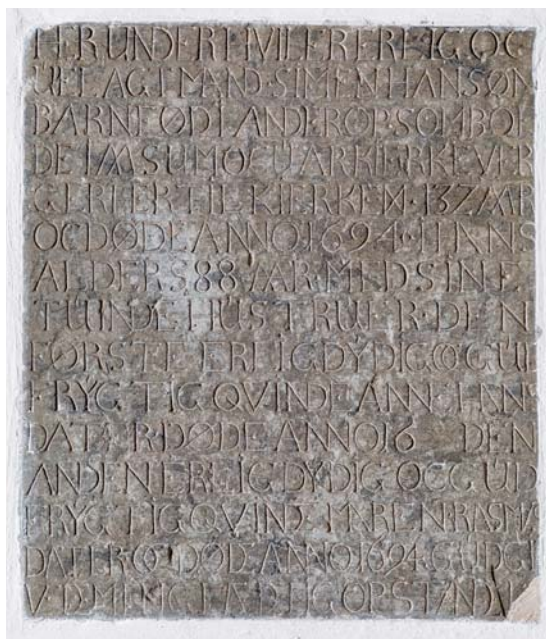 HER UNDER HVILER EREIG OG
UELAGT MAND SIMEN HANSØN
BARNFØDT ANDEROP SOM BOI
DE I M SUMO OC UAR KIERKEVER
GER HER TIL KIERKEN 37 AAR
OC DØDE ANNO 1694 HANS
ALDERS 88 AAR MED SINE
TUINDE HUSTRUER DEN
FØRSTE EREIG DYDIG OC GUD
FRYGTIG QVINDE ANNE HANS
DATAR DØDE ANNO 16 DEN
ANDEN EREIG DYDIG OC GUD
FRYGTIG QVINDE MAREN RASMA
DATER OC DØD ANNO 1694 GUD GI
V D M EN GLÆDEIG OPSTAND